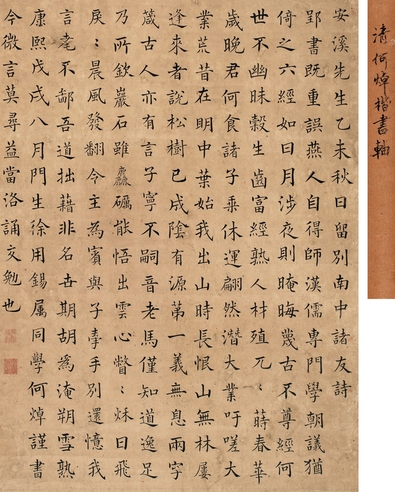 清何焯楷書軸
安溪先生乙未秋日留別南中諸友詩
郢書既重誤燕人自得師漢儒專門學朝議猶
倚之六經如日月涉夜則晻晦蔑古不尊經何
世不幽昧穀生齒富經熟人材殖兀〻蒔春華
歲晚君何食諸子乘休運翩然潛大業吁嗟大
業荒昔在明中葉始我出山時長恨山無林屢
逢來者說松樹已成陰有源第一義無息兩字
箴古人亦有言子寧不嗣音老馬僅知道逸足
乃所欽巖石雖麤礪能悟出雲心瞥〻秌日飛
戾〻晨風發翻今主為賓與子臺手別還憶我
言耄不鄙吾道拙藉非名世期胡為淹朔雪熟
康熙戊戌八月門生徐用錫屬同學何焯謹書
今微言莫尋益當洛誦文勉也